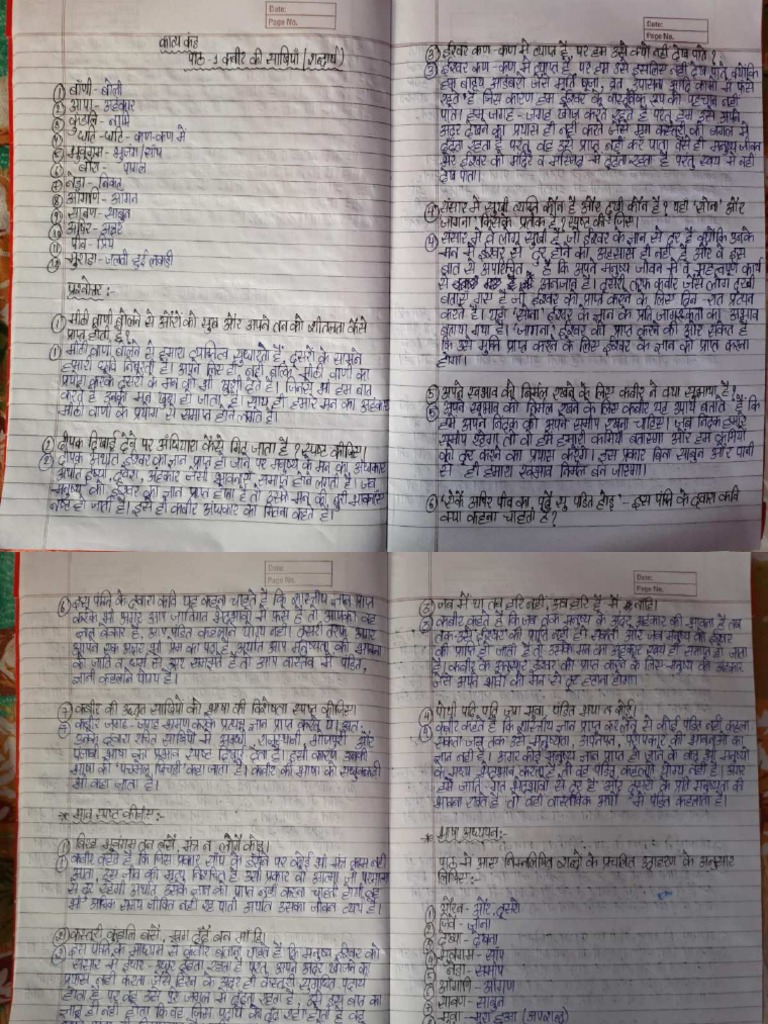 Date:
Page No.
काव्य खंड
पाठ-1 कबीर की साखियाँ (शब्दार्थ)
① बाँणी - बोली
② आपा - अहंकार
③ कुंडलि - नाभि
④ घटि-घटि - कण-कण में
⑤ भुवंगम - भुजंग/सांप
⑥ बौरा - पागल
⑦ नेड़ा - निकट
⑧ आँगणि - आंगन
⑨ साबण - साबुन
⑩ अषिर - अक्षर
⑪ पीव - प्रिय
⑫ मुराड़ा - जलती हुई लकड़ी
प्रश्नोत्तर :-
① मीठी वाणी बोलने से औरों को सुख और अपने तन को शीतलता कैसे
प्राप्त होती है?
① मीठी वाणी बोलने से हमारा व्यक्तित्व सुधारते हैं, दूसरों के सामने
हमारी छवि निखरती है। अपने लिए ही नहीं बल्कि मीठी वाणी का
प्रयोग करके दूसरों के मन को भी खुशी देते हैं। जिनसे भी हम बात
करते हैं उनका मन खुश हो जाता है। साथ ही हमारे मन का अहंकार
मीठी वाणी के प्रयोग से समाप्त होने लगता है।
② दीपक दिखाई देने पर अँधियारा कैसे मिट जाता है? स्पष्ट कीजिए।
② दीपक अर्थात ईश्वर का ज्ञान प्राप्त हो जाने पर मनुष्य के मन का अंधकार
अर्थात ईर्ष्या, द्वेष, अहंकार जैसी भावनाएँ समाप्त होने लगती है। जब
मनुष्य को ईश्वर का ज्ञान प्राप्त होता है तो उसके मन की बुरी भावनाएँ
नष्ट हो जाती है। इसे ही कबीर अंधकार का मिटना कहते हैं।
Date:
Page No.
③ ईश्वर कण-कण में व्याप्त है, पर हम उसे क्यों नहीं देख पाते?
③ ईश्वर कण-कण में व्याप्त है, पर हम उसे इसलिए नहीं देख पाते क्योंकि
हम बाहय आडंबरों जैसे मूर्ति पूजा, व्रत, उपासना आदि कार्यों में फँसे
रहते हैं जिस कारण हम ईश्वर के वास्तविक रूप को पहचान नहीं
पाते। हम जगह-जगह खोज करते रहते हैं परंतु हम उसे अपने
अंदर देखने का प्रयास ही नहीं करते जैसे मृग कस्तूरी को जंगल में
ढूँढता रहता है परंतु वह उसे प्राप्त नहीं कर पाता वैसे ही मनुष्य जीवन
भर ईश्वर को मंदिर व मस्जिद में ढूँढता रहता है परंतु स्वयं में नहीं
देख पाता।
④ संसार में सुखी व्यक्ति कौन है और दुखी कौन है? यहाँ 'सोना' और
'जागना' किसके प्रतीक हैं? स्पष्ट कीजिए।
④ संसार में वे लोग सुखी हैं जो ईश्वर के ज्ञान से दूर हैं क्योंकि उनके
मन में ईश्वर से दूर होने का अहसास ही नहीं है और वे इस
बात से अपरिचित हैं कि अपने मनुष्य जीवन में वे महत्वपूर्ण कार्य
से अनजान हैं। दूसरी तरफ कबीर जैसे लोग दुखी
बताए गए हैं जो ईश्वर को प्राप्त करने के लिए दिन-रात प्रयत्न
करते हैं। यहाँ 'सोना' ईश्वर के ज्ञान के प्रति जागरूकता का अभाव
बताया गया है। 'जागना' ईश्वर को प्राप्त करने की ओर संकेत है
कि उसे मुक्ति प्राप्त करने के लिए ईश्वर के ज्ञान को प्राप्त करना
होगा।
⑤ अपने स्वभाव को निर्मल रखने के लिए कबीर ने क्या सुझाया है?
⑤ अपने स्वभाव को निर्मल रखने के लिए कबीर यह उपाय बताते हैं कि
हमें अपने निंदक को अपने समीप रखना चाहिए। जब निंदक हमारे
समीप रहेगा तो वो हमें हमारी कमियाँ बताएगा और हम कमियों
को दूर करने का प्रयास करेंगे। इस प्रकार बिना साबुन और पानी
से ही हमारा स्वभाव निर्मल बन जाएगा।
⑥ 'ऐकै अषिर पीव का, पढ़ै सु पंडित होइ' - इस पंक्ति के द्वारा कवि
क्या कहना चाहता है?
Date:
Page No.
⑥ इस पंक्ति के द्वारा कवि यह कहना चाहते हैं कि शास्त्रीय ज्ञान प्राप्त
करके भी अगर आप जातिगत भेदभावों में फँसे हैं तो आपका वह
ज्ञान बेकार है, आप पंडित कहलाने योग्य नहीं। दूसरी तरफ अगर
आपने एक अक्षर भी प्रेम का पढ़ा है अर्थात आप मनुष्यता की भावना
को जाति व धर्म से ऊपर समझते हैं तो आप वास्तव में पंडित,
ज्ञानी कहलाने योग्य है।
⑦ कबीर की उद्धृत साखियों की भाषा की विशेषता स्पष्ट कीजिए।
⑦ कबीर जगह-जगह भ्रमण करके प्रत्यक्ष ज्ञान प्राप्त करते थे। अतः
उनके द्वारा रचित साखियों में अवधी, राजस्थानी, भोजपुरी और
पंजाबी भाषा का प्रभाव स्पष्ट दिखाई देता है। इसी कारण उनकी
भाषा को 'पचमेल खिचड़ी' कहा जाता है। कबीर की भाषा को सधुक्कड़ी
भी कहा जाता है।
* भाव स्पष्ट कीजिए:-
① बिरह भुवंगम तन बसै, मंत्र न लागै कोइ।
① कबीर कहते हैं कि जिस प्रकार साँप के डसने पर कोई भी मंत्र काम नहीं
आता, उस जीव की मृत्यु निश्चित है उसी प्रकार जो आत्मा भी परमात्मा
से दूर रहेगी अर्थात उसके ज्ञान को प्राप्त नहीं करना चाहते होगी, वह
भी अधिक समय जीवित नहीं रह पाती अर्थात उसका जीवन व्यर्थ है।
② कस्तूरी कुंडलि बसै, मृग ढूँढै बन माँहि।
② इस पंक्ति के माध्यम से कबीर बताना चाहते हैं कि मनुष्य ईश्वर को
संसार में इधर-उधर ढूंढता रहता है परंतु अपने अंदर खोजने का
प्रयास नहीं करता जैसे हिरन के अंदर ही कस्तूरी सुगंधित पदार्थ
होता है, पर वह उसे पूरे जंगल में ढूँढता रहता है, उसे इस बात का
ज्ञान ही नहीं होता कि वह जिस पदार्थ को ढूँढ रहा होता है वह
Date:
Page No.
③ जब मैं था तब हरि नहीं, अब हरि हैं मैं नांहि।
③ कबीर कहते हैं कि जब तक मनुष्य के अंदर अहंकार की भावना है तब
तक उसे ईश्वर की प्राप्ति नहीं हो सकती और जब मनुष्य को ईश्वर
की प्राप्ति हो जाती है तो उसके मन का अहंकार स्वयं ही समाप्त हो जाता
है। कबीर के अनुसार ईश्वर को प्राप्त करने के लिए मनुष्य को अहंकार
जैसे अपने भावों को मन से दूर हटाना होगा।
④ पोथी पढ़ि पढ़ि जग मुवा, पंडित भया न कोई।
④ कबीर कहते हैं कि शास्त्रीय ज्ञान प्राप्त कर लेने से कोई पंडित नहीं कहला
सकता जब तक उसे मनुष्यता, अपनेपन, परोपकार की भावनाओं का
ज्ञान नहीं है। अगर कोई मनुष्य ज्ञान प्राप्त हो जाने के बाद भी मनुष्यों
के मध्य भेदभाव करता है, तो वह पंडित कहलाने योग्य नहीं है। अगर
हम जाति-गत भेदभावों से दूर हैं और दूसरों के प्रति मनुष्यता की
भावना रखते हैं तो वही वास्तविक अर्थों में पंडित कहलाता है।
* भाषा अध्ययन:-
पाठ में आए निम्नलिखित शब्दों के प्रचलित उदाहरण के अनुसार
लिखिए:-
① औरन - और, दूसरो
② जिवै - जीना
③ देख्या - देखना
④ भुवंगम - साँप
⑤ नेड़ा - समीप
⑥ आँगणि - आंगण
⑦ साबण - साबुन
⑧ मुवा - मरा हुआ